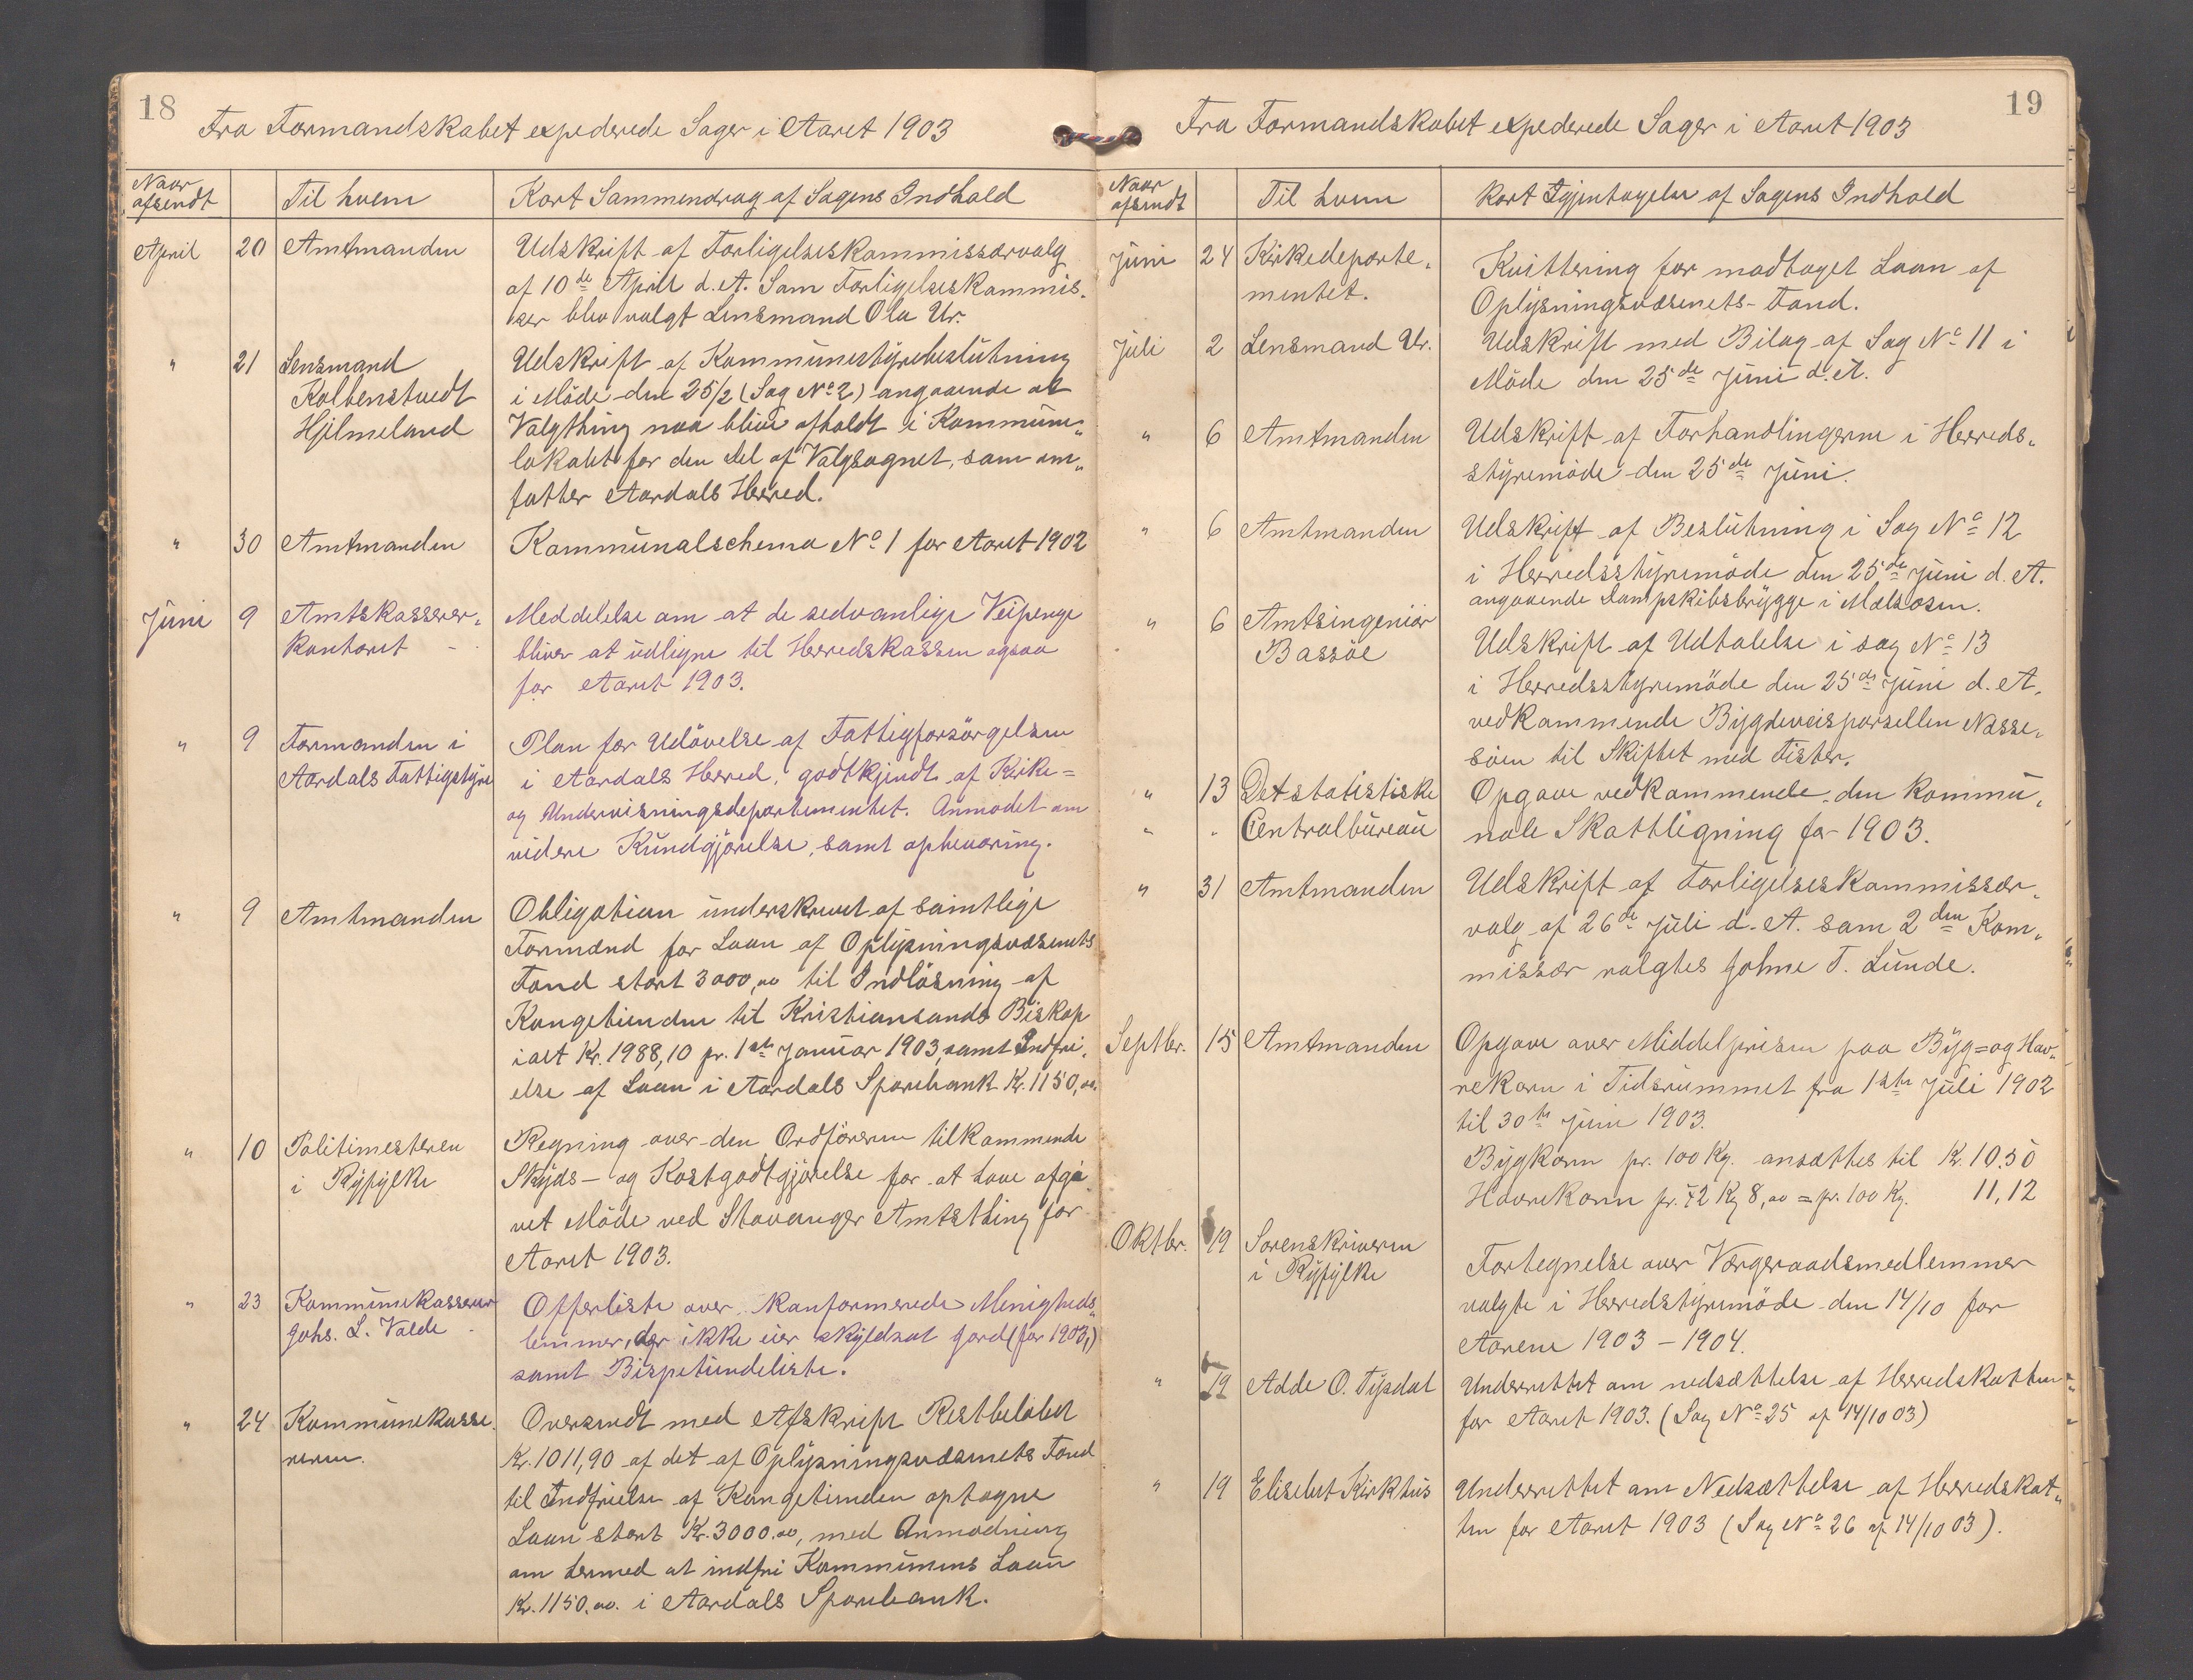 18
Fra Formandskabet expederede Sager i Aaret 1903
Naar afsendt
Til hvem
Kort Sammendrag af Sagens Indhold
April 20 Amtmanden
Udskrift af Forligelseskommissærvalg
af 10de April d. A. Som Forligelseskommis-
sær blev valgt Lensmand Ola Ur.
" 21 Lensmand
Kolbenstvedt
Hjelmeland
Udskrift af Kommunestyrebeslutning
i Möde den 25/2 (Sag No 2) angaaende at
Valgthing maa blive afholdt i Kommune„
lokalet for den del af Valgsognet, som om„
fatter Aardals Herred.
" 30 Amtmanden
Kommunalschema No 1 for Aaret 1902
Juni 9 Amtskasserer-
kontoret
Meddelelse om at de sedvanlige Veipenge
bliver at udligne til Herredskassen ogsaa
for Aaret 1903.
" 9 Formanden i
Aardals Fattigstyre
Plan for Udövelse af Fattigforsörgelsen
i Aardals Herred, godtkjendt af Kirke=
og Undervisningsdepartementet. Anmodet om
videre Kundgjörelse, samt opbevaring.
" 9 Amtmanden
Obligation underskrevet af samtlige
Formænd for Laan af Oplysningsvæsenets
Fond stort 3000,00 til Indlösning af
Kongetienden til Kristiansands Biskop
ialt Kr. 1988,10 pr. 1ste Januar 1903, samt Indfri-
else af Laan i Aardals Sparebank Kr. 1150,00.
" 10 Politimesteren
i Ryfylke
Regning over den Ordföreren tilkommende
Skyds- og Kostgodtgjörelse for at have afgi
vet Möde ved Stavanger Amtsthing for
Aaret 1903.
" 23 Kommunekasserer
Johs. L. Valde
Offerliste over konfirmerede Menigheds„
lemmer, der ikke eier skyldsat jord (for 1903,)
samt Bispetiendeliste.
" 24 Kommunekasse-
reren.
Oversendt med Afskrift Restbelöbet
Kr. 1011,90 af det af Oplysningsvæsenets Fond
til Indfrielse af Kongetienden optagne
Laan stort Kr. 3000.00, med Anmodning
om dermed at indfri Kommunens Laan
Kr. 1150.00. i Aardals Sparebank.
19
Fra Formandskabet expederede Sager i Aaret 1903
Naar afsendt
Til hvem
Kort Igjentagelse af Sagens Indhold
Juni 24 Kirkedeparte-
mentet.
Kvittering for modtaget Laan af
Oplysningsvæsenets-Fond.
Juli 2 Lensmand Ur.
Udskrift med Bilag af Sag No 11 i
Möde den 25de Juni d. A.
" 6 Amtmanden
Udskrift af Forhandlingerne i Herreds-
styremöde den 25de Juni.
" 6 Amtmanden
Udskrift af Beslutning i Sag No 12
i Herredsstyremöde den 25de Juni d. A.
angaaende Dampskibsbrygge i Mælsosen.
" 6 Amtsingeniör
Bassöe
Udskrift af Udtalelse i sag No 13
i Herredsstyremöde den 25de Juni d. A.
vedkommende Bygdeveisparsellen Nasse-
söen til Skiftet med Fister.
" 13 Det statistiske
" " Centralbureau
Opgave vedkommende den kommu-
nale Skattligning for 1903.
" 31 Amtmanden
Udskrift af Forligelseskommissær-
valg af 26de Juli d. A. som 2den Kom-
missær valgtes Johne T. Lunde.
Septbr. 15 Amtmanden
Opgave over Middelprisen paa Byg= og Hav-
rekorn i Tidsrummet fra 1ste Juli 1902
til 30te Juni 1903.
Bygkorn pr. 100 Kg. ansættes til Kr. 10.50
Havrekorn pr. 72 Kg 8,00 = pr. 100 Kg. 11,12
Oktbr. 19 Sorenskriveren
i Ryfylke
Fortegnelse over Værgeraadsmedlemmer
valgte i Herredstyremöde den 14/10 for
Aarene 1903 - 1904.
" 19 Adde O. Tysdal
Underrettet om nedsættelse af Herredskatten
for Aaret 1903. (Sag No 25 af 14/10 03)
" 19 Elisebet Kirkhus
Underrettet om Nedsættelse af Herredskat„
ten for Aaret 1903 (Sag No 26 af 14/10 03).